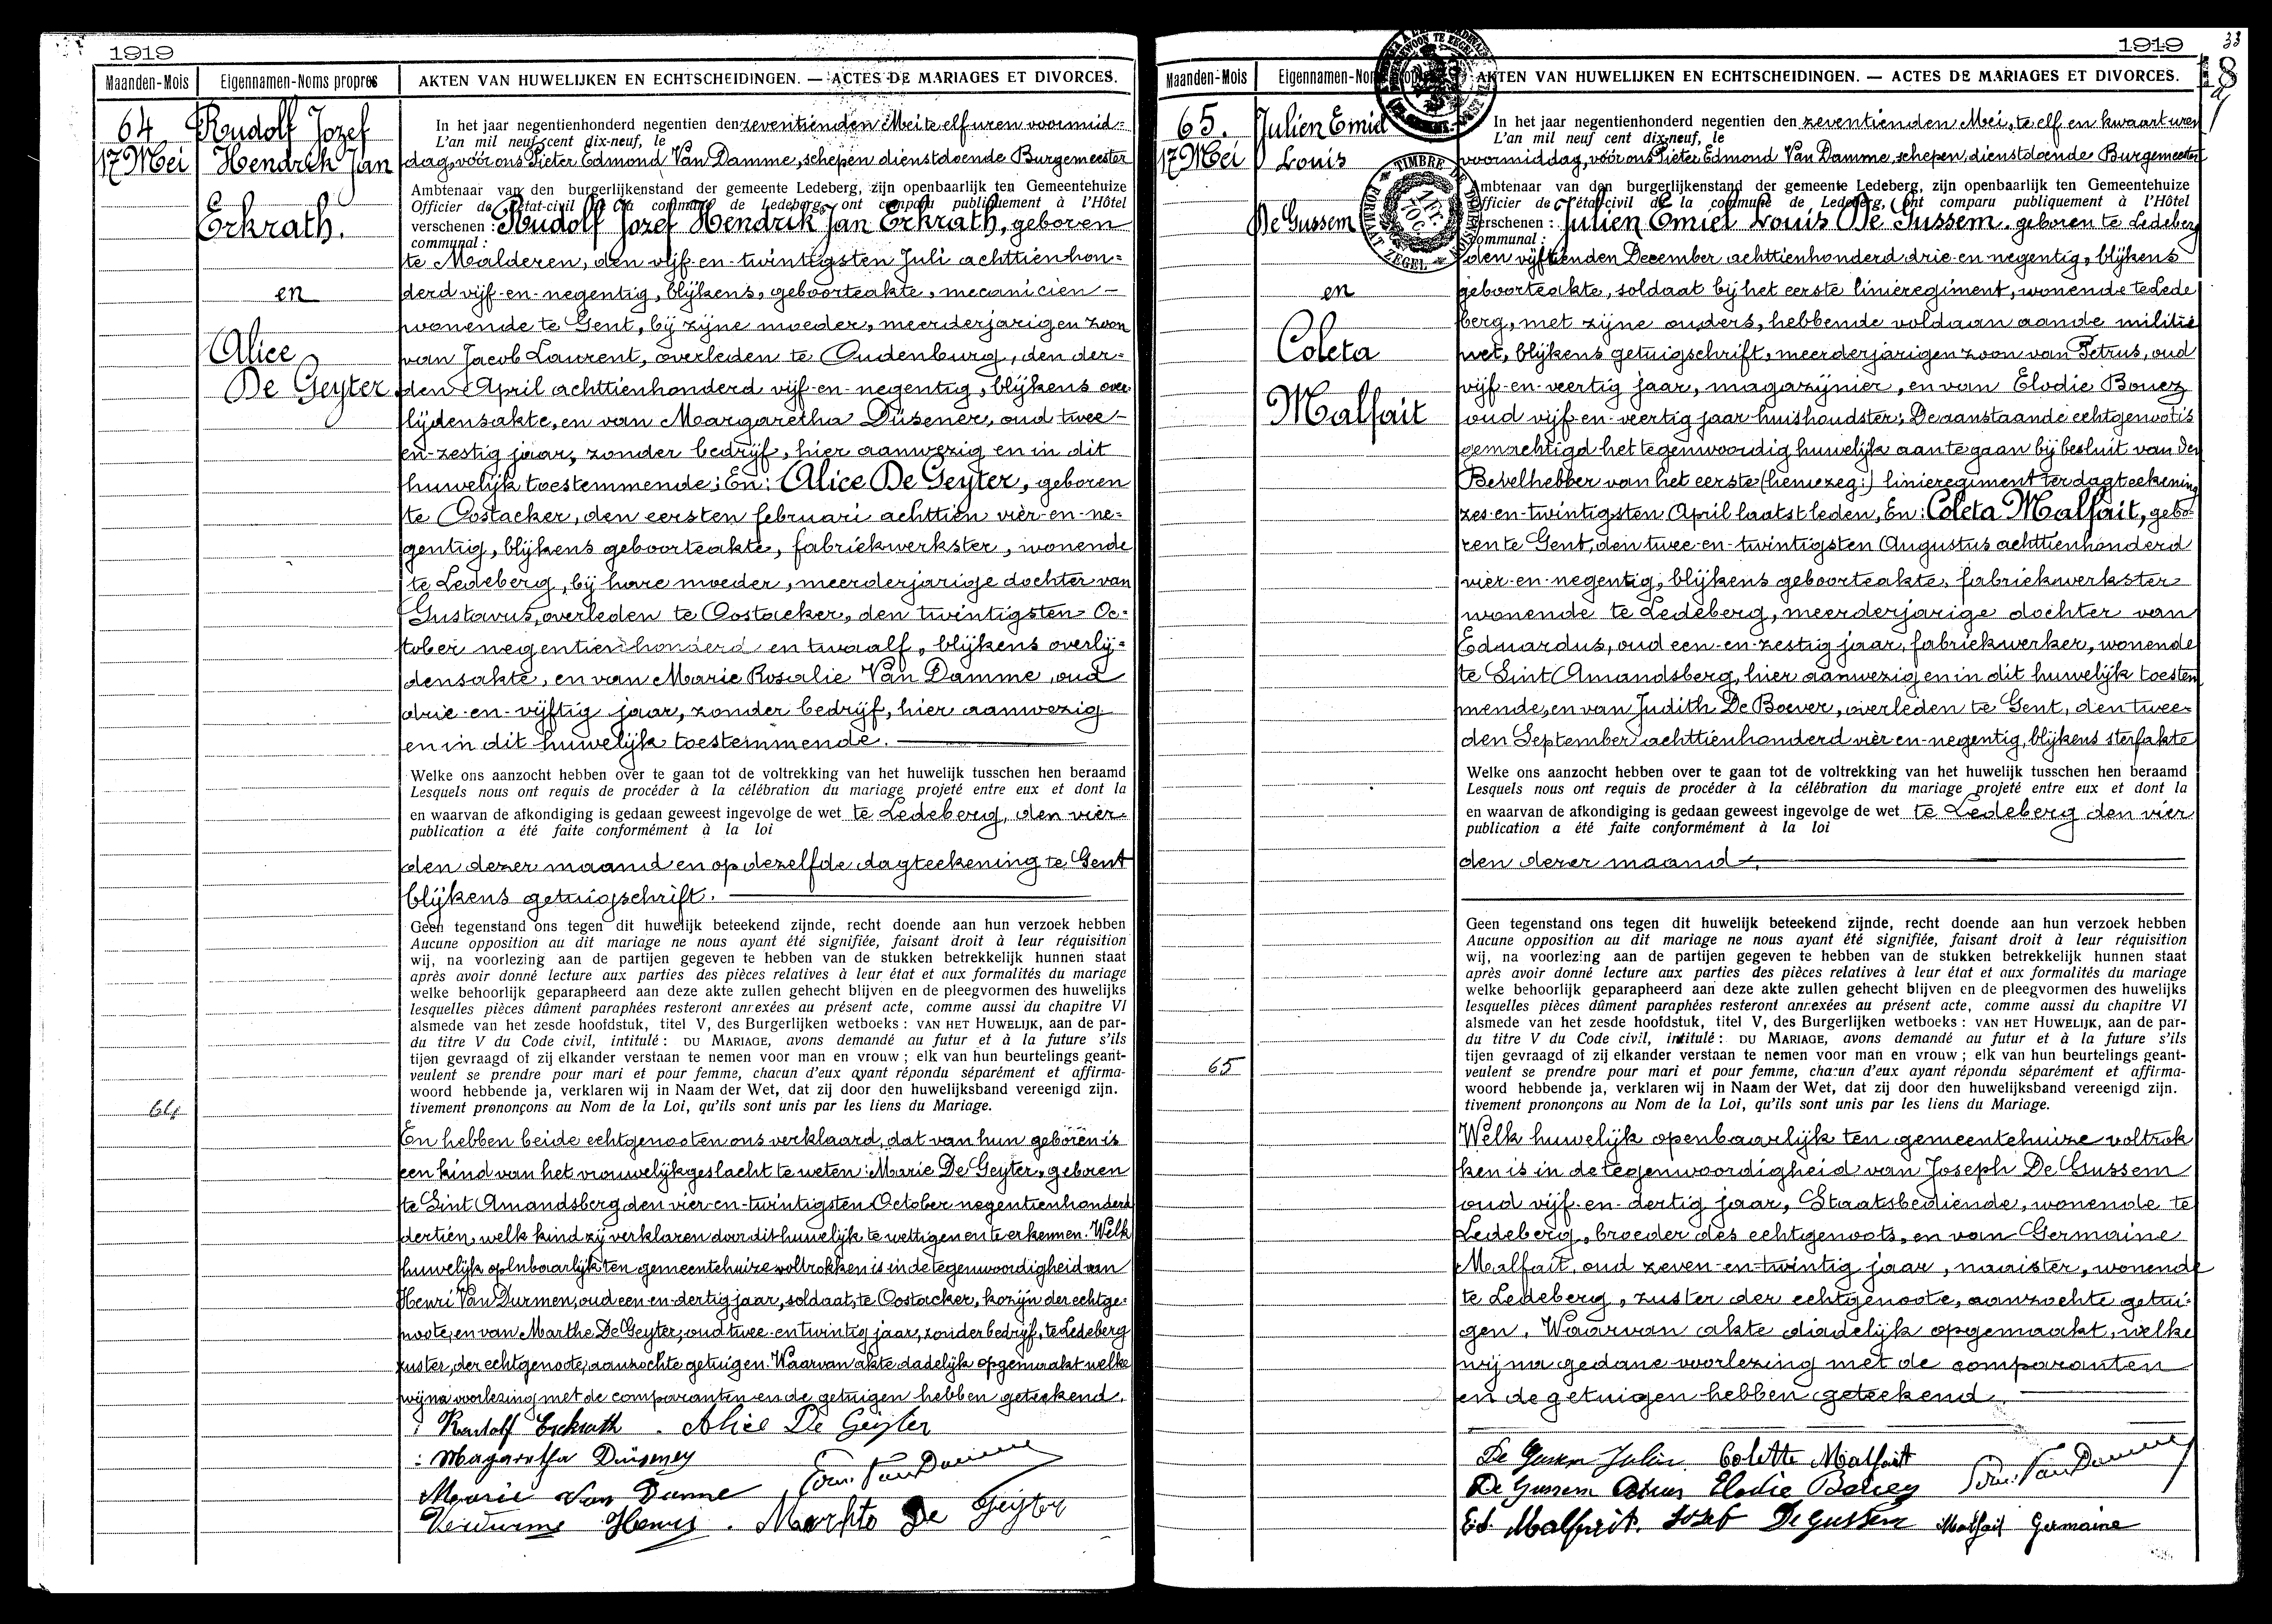 1919
Maanden-Mois Eigennamen-Noms propres AKTEN VAN HUWELIJKEN EN ECHTSCHEIDINGEN. — ACTES DE MARIAGES ET DIVORCES.
64
17 Mei
Rudolf Jozef
Hendrik Jan
Erkrath.
en
Alice
De Geyter
64
In het jaar negentienhonderd negentien den zeventienden Mei te elf uren voormid=
L'an mil neuf cent dix-neuf, le
dag, voor ons Pieter Edmond Van Damme, schepen dienstdoende Burgemeester
Ambtenaar van den burgerlijkenstand der gemeente Ledeberg, zijn openbaarlijk ten Gemeentehuize
Officier de l'état-civil de la commune de Ledeberg, ont comparu publiquement à l'Hôtel
verschenen : Rudolf Jozef Hendrik Jan Erkrath, geboren
communal :
te Malderen, den vijf-en-twintigsten Juli achttienhon=
derd vijf-en-negentig, blijkens, geboorteakte, mecanicien —
wonende te Gent, bij zijne moeder, meerderjarigen zoon
van Jacob Laurent, overleden te Oudenburg, den der=
den April achttienhonderd vijf-en-negentig, blijkens over
lijdensakte, en van Margaretha Düsener, oud twee —
en-zestig jaar, zonder bedrijf, hier aanwezig en in dit
huwelijk toestemmende; En: Alice De Geyter, geboren
te Oostacker, den eersten februari achttien vier-en-ne=
gentig, blijkens geboorteakte, fabriekwerkster, wonende
te Ledeberg, bij hare moeder, meerderjarige dochter van
Gustavus, overleden te Oostacker, den twintigsten Oc=
tober negentienhonderd en twaalf, blijkens overlij=
densakte, en van Marie Rosalie Van Damme, oud
drie-en-vijftig jaar, zonder bedrijf, hier aanwezig
en in dit huwelijk toestemmende.
Welke ons aanzocht hebben over te gaan tot de voltrekking van het huwelijk tusschen hen beraamd
Lesquels nous ont requis de procéder à la célébration du mariage projeté entre eux et dont la
en waarvan de afkondiging is gedaan geweest ingevolge de wet te Ledeberg, den vier=
publication a été faite conformément à la loi
den dezer maand en op dezelfde dagteekening te Gent
blijkens getuigschrift.
Geen tegenstand ons tegen dit huwelijk beteekend zijnde, recht doende aan hun verzoek hebben
Aucune opposition au dit mariage ne nous ayant été signifiée, faisant droit à leur réquisition
wij, na voorlezing aan de partijen gegeven te hebben van de stukken betrekkelijk hunnen staat
après avoir donné lecture aux parties des pièces relatives à leur état et aux formalités du mariage
welke behoorlijk geparapheerd aan deze akte zullen gehecht blijven en de pleegvormen des huwelijks
lesquelles pièces dûment paraphées resteront annexées au présent acte, comme aussi du chapitre VI
alsmede van het zesde hoofdstuk, titel V, des Burgerlijken wetboeks : VAN HET HUWELIJK, aan de par-
du titre V du Code civil, intitulé : DU MARIAGE, avons demandé au futur et à la future s'ils
tijen gevraagd of zij elkander verstaan te nemen voor man en vrouw ; elk van hun beurtelings geant-
veulent se prendre pour mari et pour femme, chacun d'eux ayant répondu séparément et affirma-
woord hebbende ja, verklaren wij in Naam der Wet, dat zij door den huwelijksband vereenigd zijn.
tivement prononçons au Nom de la Loi, qu'ils sont unis par les liens du Mariage.
En hebben beide echtgenooten ons verklaard, dat van hun geboren is
een kind van het vrouwelijk geslacht te weten: Marie De Geyter, geboren
te Sint Amandsberg, den vier-en-twintigsten October negentienhonderd
dertien, welk kind zij verklaren door dit huwelijk te wettigen en te erkennen. Welk
huwelijk openbaarlijk ten gemeentehuize voltrokken is in de tegenwoordigheid van
Henri Van Durmen, oud een-en-dertig jaar, soldaat, te Oostacker, kozijn der echtge=
noote, en van Marthe De Geyter, oud twee-en-twintig jaar, zonder bedrijf, te Ledeberg
zuster, der echtgenoote, aanzochte getuigen. Waarvan akte dadelijk opgemaakt welke
wij na voorlezing met de comparanten en de getuigen hebben geteekend.
Rudolf Erkrath . Alice De Geyter
Margaretha
Marie Van Damme Edm. Van Damme
Henri . De Geyter
1919
33
18
Maanden-Mois Eigennamen-Noms propres AKTEN VAN HUWELIJKEN EN ECHTSCHEIDINGEN. — ACTES DE MARIAGES ET DIVORCES.
TIMBRE DE DIMENSION
FORMAAT ZEGEL
65.
17 Mei
Julien Emiel
Louis
De Gussem
en
Coleta
Malfait
65
In het jaar negentienhonderd negentien den zeventienden Mei, te elf en kwaart uren
L'an mil neuf cent dix-neuf, le
voormiddag, voor ons Pieter Edmond Van Damme, schepen, dienstdoende Burgemeester
Ambtenaar van den burgerlijkenstand der gemeente Ledeberg, zijn openbaarlijk ten Gemeentehuize
Officier de l'état-civil de la commune de Ledeberg, ont comparu publiquement à l'Hôtel
verschenen : Julien Emiel Louis De Gussem. geboren te Ledeberg
communal :
den vijftienden December achttienhonderd drie-en-negentig, blijkens
geboorteakte, soldaat bij het eerste linieregiment, wonende te Lede
berg, met zijne ouders, hebbende voldaan aan de militie
wet, blijkens getuigschrift, meerderjarigen zoon van Petrus, oud
vijf-en-veertig jaar, magazijnier, en van Elodie Bouez
oud vijf-en-veertig jaar huishoudster; De aanstaande echtgenoot is
gemachtigd het tegenwoordig huwelijk aan te gaan bij besluit van den
Bevelhebber van het eerste (heniezeg:) linieregiment ter dagteekening
zes-en-twintigsten April laatst leden, En: Coleta Malfait, gebo=
ren te Gent, den twee-en-twintigsten Augustus achttienhonderd
vier-en-negentig, blijkens geboorteakte, fabriekwerkster
wonende te Ledeberg, meerderjarige dochter van
Eduardus, oud een-en-zestig jaar, fabriekwerker, wonende
te Sint Amandsberg, hier aanwezig en in dit huwelijk toestem
mende, en van Judith De Boever, overleden te Gent, den twee=
den September achttienhonderd vier en-negentig, blijkens sterfakte
Welke ons aanzocht hebben over te gaan tot de voltrekking van het huwelijk tusschen hen beraamd
Lesquels nous ont requis de procéder à la célébration du mariage projeté entre eux et dont la
en waarvan de afkondiging is gedaan geweest ingevolge de wet te Ledeberg den vier
publication a été faite conformément à la loi
den dezer maand.
Geen tegenstand ons tegen dit huwelijk beteekend zijnde, recht doende aan hun verzoek hebben
Aucune opposition au dit mariage ne nous ayant été signifiée, faisant droit à leur réquisition
wij, na voorlezing aan de partijen gegeven te hebben van de stukken betrekkelijk hunnen staat
après avoir donné lecture aux parties des pièces relatives à leur état et aux formalités du mariage
welke behoorlijk geparapheerd aan deze akte zullen gehecht blijven en de pleegvormen des huwelijks
lesquelles pièces dûment paraphées resteront annexées au présent acte, comme aussi du chapitre VI
alsmede van het zesde hoofdstuk, titel V, des Burgerlijken wetboeks : VAN HET HUWELIJK, aan de par-
du titre V du Code civil, intitulé : DU MARIAGE, avons demandé au futur et à la future s'ils
tijen gevraagd of zij elkander verstaan te nemen voor man en vrouw ; elk van hun beurtelings geant-
veulent se prendre pour mari et pour femme, chacun d'eux ayant répondu séparément et affirma-
woord hebbende ja, verklaren wij in Naam der Wet, dat zij door den huwelijksband vereenigd zijn.
tivement prononçons au Nom de la Loi, qu'ils sont unis par les liens du Mariage.
Welk huwelijk openbaarlijk ten gemeentehuize voltrok
ken is in de tegenwoordigheid van Joseph De Gussem
oud vijf-en-dertig jaar, Staatsbediende, wonende te
Ledeberg, broeder des echtgenoots, en van Germaine
Malfait, oud zeven-en-twintig jaar, naaister, wonende
te Ledeberg, zuster der echtgenoote, aanzochte getui=
gen. Waarvan akte diadelijk opgemaakt, welke
wij na gedane voorlezing met de comparanten
en de getuigen hebben geteekend.
De Gussem Julien. Colette Malfait
De Gussem Petrus Elodie Edm. Van Damme
Ed. Malfait. Jozef De Gussem Malfait Germaine